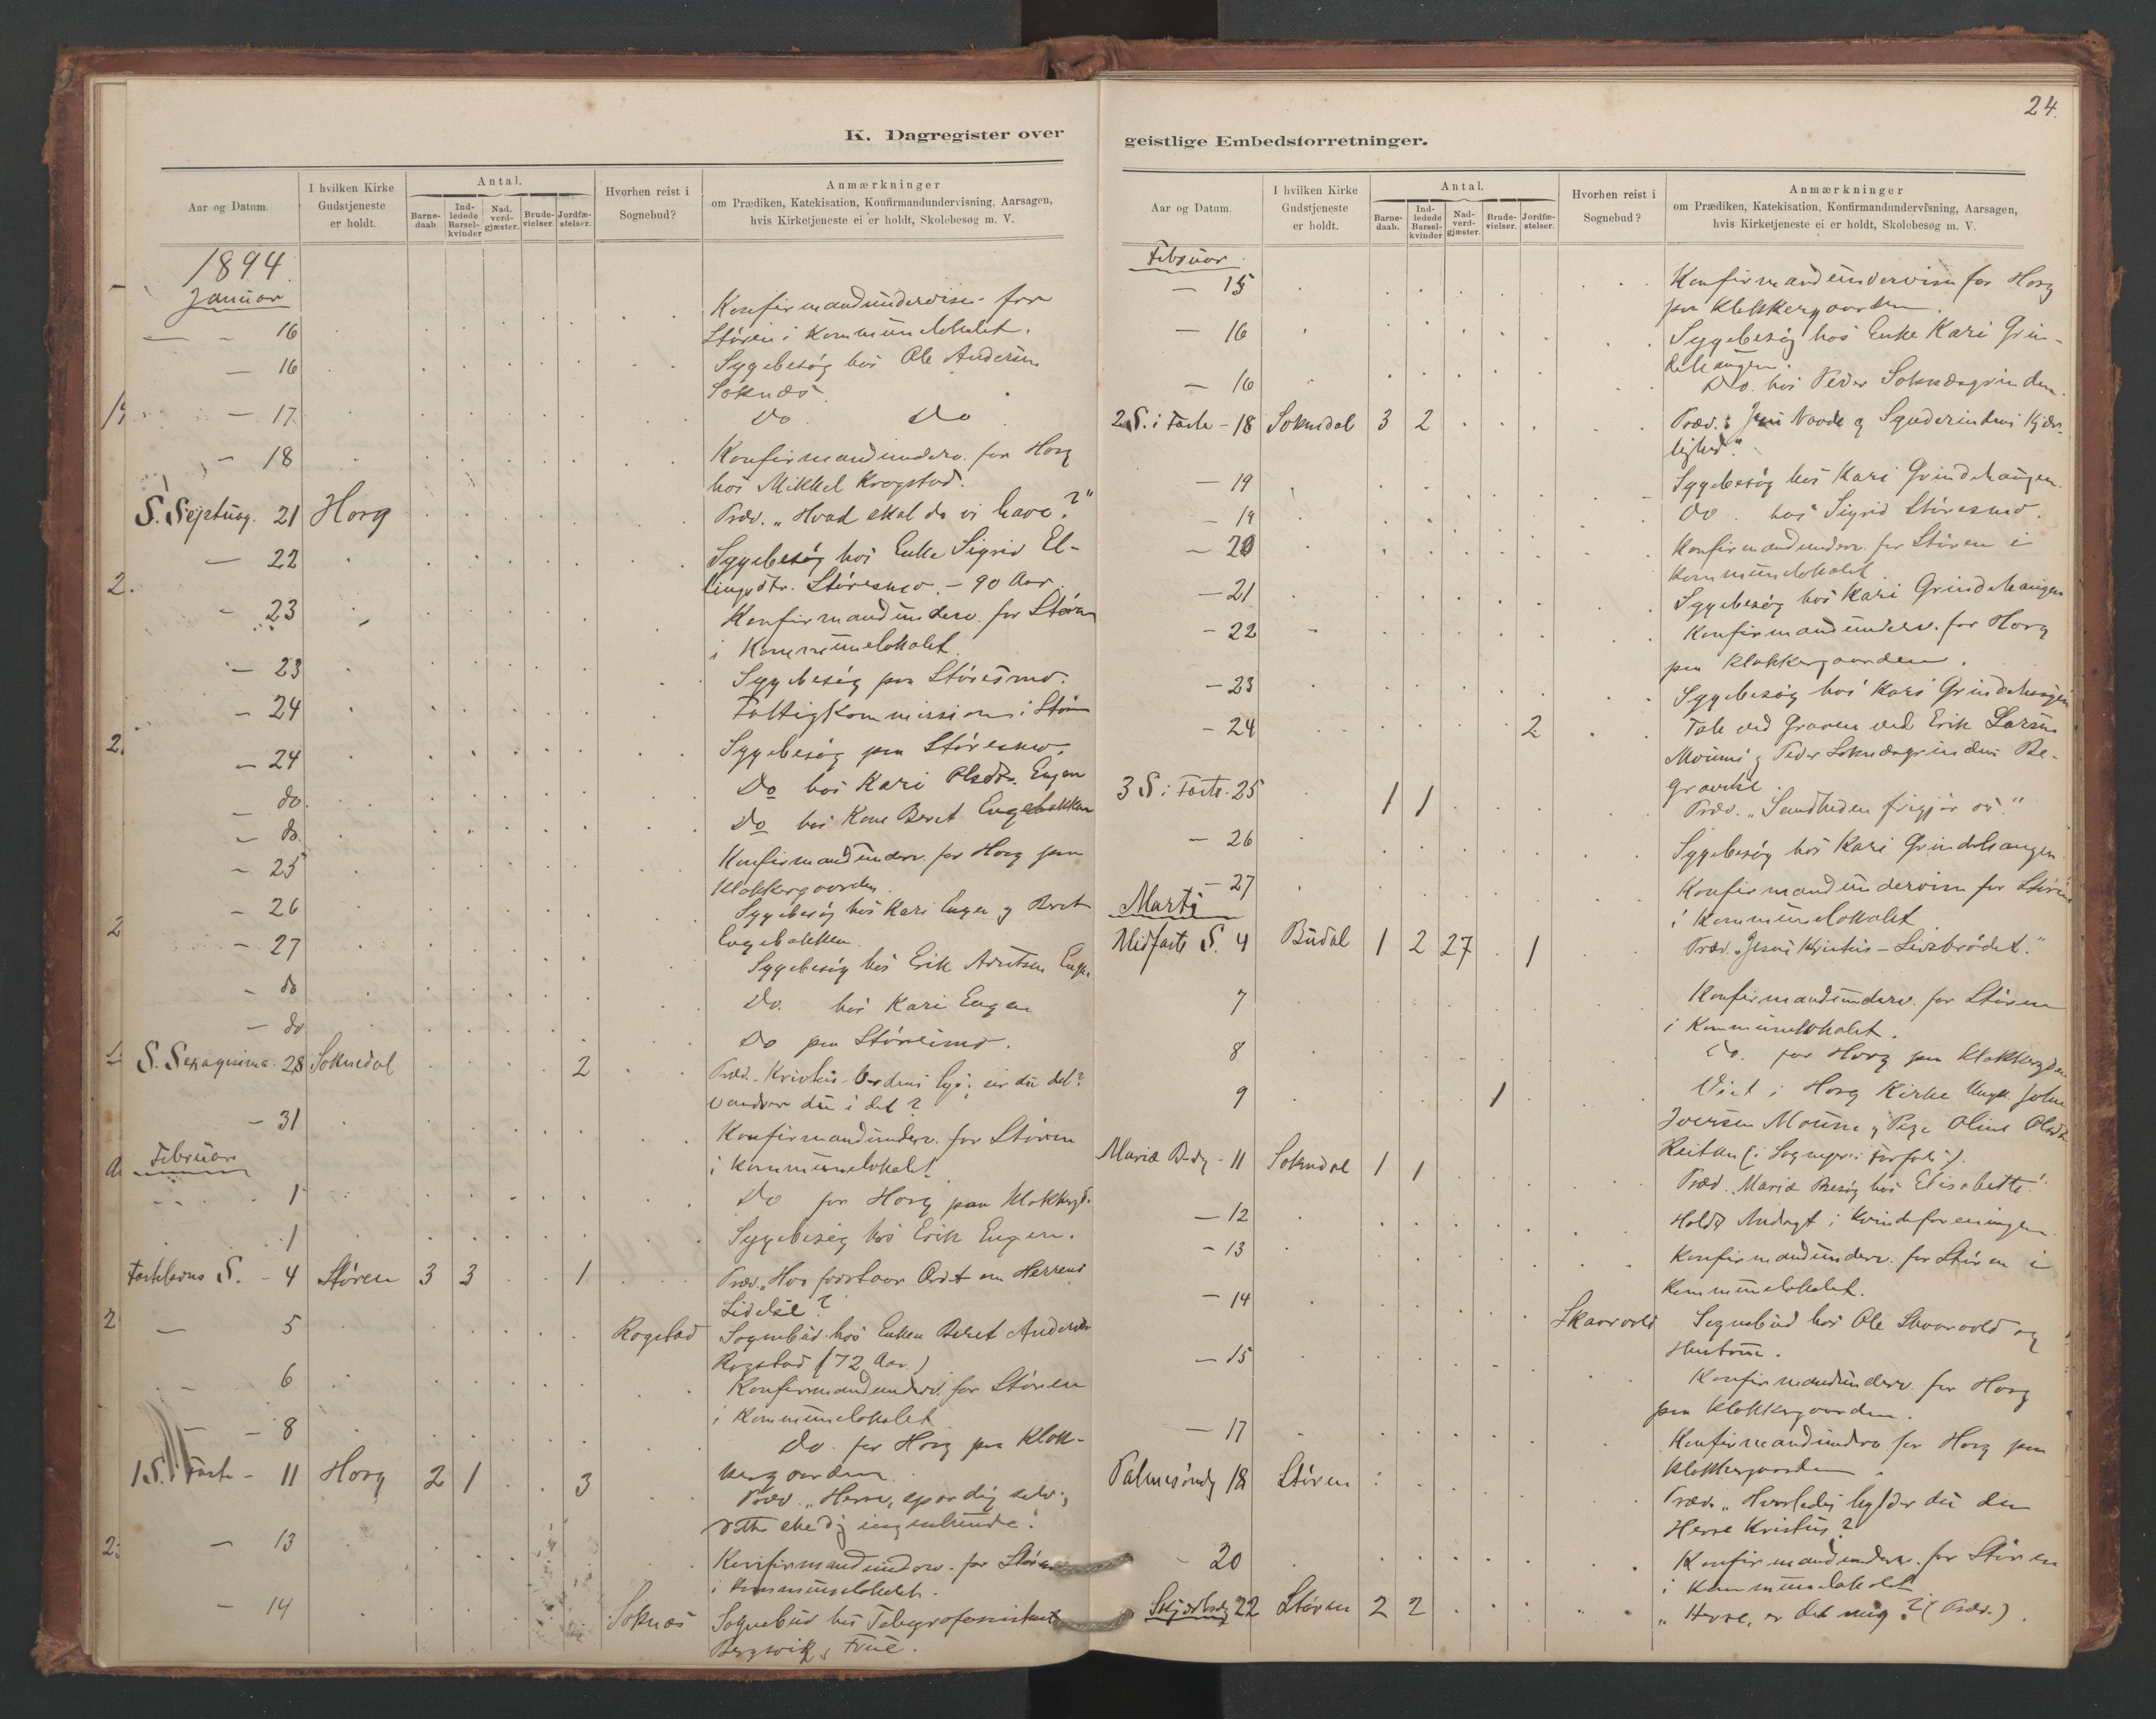 K. Dagregister over
Aar og Datum.
I hvilken Kirke
Gudstjeneste
er holdt.
Antal.
Barne-
daab
Ind-
ledede
Barsel-
kvinder
Nad-
verd-
gjæster.
Brude-
vielser.
Jordfæ-
stelser.
Hvorhen reist i
Sognebud?
Anmærkninger
om Prædiken, Katekisation, Konfirmandundervisning, Aarsagen,
hvis Kirketjeneste ei er holdt, Skolebesøg m. V.
1894
Januar
16 Konfirmandundervisn. for
Støren i Kommunelokalet.
16 Sygebesøg hos Ole Andersen
Soknæs
17 Do Do
18 Konfirmandunderv. for Horg
hos Mikkel Krogstad.
S. Septuag. 21 Horg Præd. „Hvad skal da vi have?"
22 Sygebesøg hos Enke Sigrid El-
lingsdtr. Støresmo. - 90 Aar.
23 Konfirmandunderv. for Støren
i Kommunelokalet.
23 Sygebesøg paa Støresmo.
24 Fattigkommission i Støren
24 Sygebesøg paa Støresmo.
do. Do hos Kari Olsdtr. Engen
do. Do hos Kone Beret Engebakken
25 Konfirmandunderv. for Horg paa
Klokkergaarden.
26 Sygebesøg hos Kari Engen og Beret
Engebakken.
27 Sygebesøg hos Erik Arntsen Engen
do Do. hos Kari Engen
do Do paa Støresmo.
S. Sexagesima 28 Soknedal 2 Præd. Kristus Verdens lys; ser du det?
vandrer du i det?
31 Konfirmandunderv. for Støren
i Kommunelokalet
Februar
1 Do for Horg paa Klokkergd.
1 Sygebesøg hos Erik Engen.
Fastelavns S. - 4 Støren 3 3 1 Præd. „Hvo forstaar Ordet om Herrens
Lidelse?
5 Rogstad Sognebud hos Enken Beret Andersdtr
Rogstad (72 Aar.)
6 Konfirmandunderv. for Støren
i Kommunelokalet
8 Do. for Horg paa Klok-
kergaarden.
1 S. i Faste - 11 Horg 2 1 3 Præd. „Herre, spar dig selv;
dette ske dig ingenlunde!
13 Konfirmandunderv. for Støren
i Kommunelokalet.
14 Soknæs Sognebud hos Telegrafassistent
Bergwitz's Frue.
24.
geistlige Embedsforretninger.
Aar og Datum.
I hvilken Kirke
Gudstjeneste
er holdt.
Antal.
Barne-
daab.
Ind-
ledede
Barsel-
kvinder
Nad-
verd-
gjæster.
Brude-
vielser.
Jordfæ-
stelser.
Hvorhen reist i
Sognebud?
Anmærkninger
om Prædiken, Katekisation, Konfirmandundervisning, Aarsagen,
hvis Kirketjeneste ei er holdt, Skolebesøg m. V.
Februar.
15 Konfirmandundervisn for Horg
paa Klokkergaarden.
16 Sygebesøg hos Enke Kari Grin-
dehaugen.
16 Do. hos Peder Soknæsgrinden.
2 S. i Faste - 18 Soknedal 3 2 Præd. „Jesu Naade og Synderindens Kjær-
lighed."
19 Sygebesøg hos Kari Grindehaugen.
19 Do. hos Sigrid Støresmo.
20 Konfirmandunderv. for Støren i
Kommunelokalet
21 Sygebesøg hos Kari Grindehaugen
22 Konfirmandunderv. for Horg
paa Klokkergaarden.
23 Sygebesøg hos Kari Grindehaugen
24 2 Tale ved Graven ved Erik Larsen
Mounes og Peder Soknæsgrindens Be-
gravelse.
3 S i Faste. 25 1 1 Præd. „Sandheden frigjør os."
26 Sygebesøg hos Kari Grindehaugen
27 Konfirmandundervisn for Støren
i Kommunelokalet
Marts
Midfaste S. 4 Budal 1 2 27 1 Præd. „Jesus Kristus - Livsbrødet."
7 Konfirmandunderv. for Støren
i Kommunelokalet.
8 Do. for Horg paa Klokkergden
9 1 Viet i Horg Kirke Ungk. John
Iversen Moune og Pige Oline Olsdtr
Reitan (i Sognepr.s Forfald).
Mariæ B.dg - 11 Soknedal 1 1 Præd. Mariæ Besøg hos Elisabeth.
12 Holdt Andagt i Kvindeforeningen
13 Konfirmandunderv. for Støren i
Kommunelokalet.
14 Skaarvold Sognebud hos Ole Skaarvold og
Hustru.
15 Konfirmandunderv. for Horg
paa Klokkergaarden.
17 Konfirmandunderv. for Horg paa
Klokkergaarden.
Palmesøndg 18 Støren Præd. „Hvorledes hylder du den
Herre Kristus?
20 Konfirmandunderv. for Støren
i Kommunelokalet
Skjærtorsdg 22 Støren 2 2 „Herre, er det mig? (Præd.).